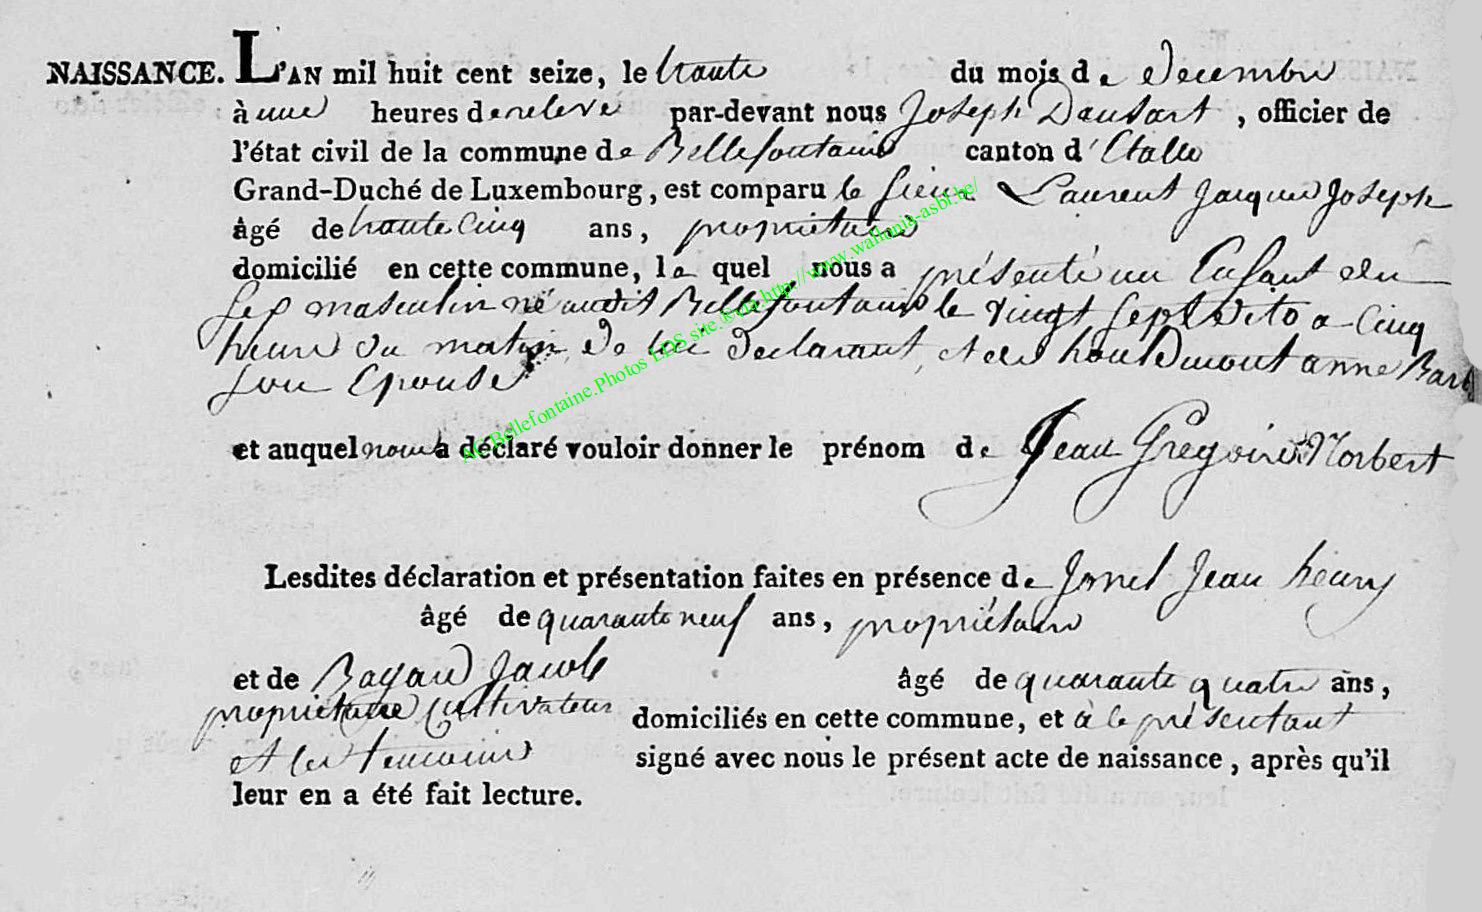 NAISSANCE. L'AN mil huit cent seize, le trante du mois de decembre
à une heures de releve par-devant nous Joseph Dausart, officier de
l'état civil de la commune de Bellefontaine canton d'Etalle
Grand-Duché de Luxembourg, est comparu le sieur Laurent Jacques Joseph
âgé de trante cinq ans, propriétaire
domicilié en cette commune, le quel nous a présenté un Enfant du
sex masculin né audit Bellefontaine le vingt sept dito a cinq
heure du matin, de lui declarant, et de houdumont anne Barb
son Epouse
et auquel nous a déclaré vouloir donner le prénom de Jean Gregoire Norbert
Lesdites déclaration et présentation faites en présence de Jean henry
âgé de quarante neuf ans, propriétaire
et de Bayard Jacob âgé de quarante quatre ans,
propriétaire Cultivateur domiciliés en cette commune, et à le présentant
et les temoins signé avec nous le présent acte de naissance, après qu'il
leur en a été fait lecture.
AC Bellefontaine.Photos LDS site @ via http://www.wallonia-asbl.be/